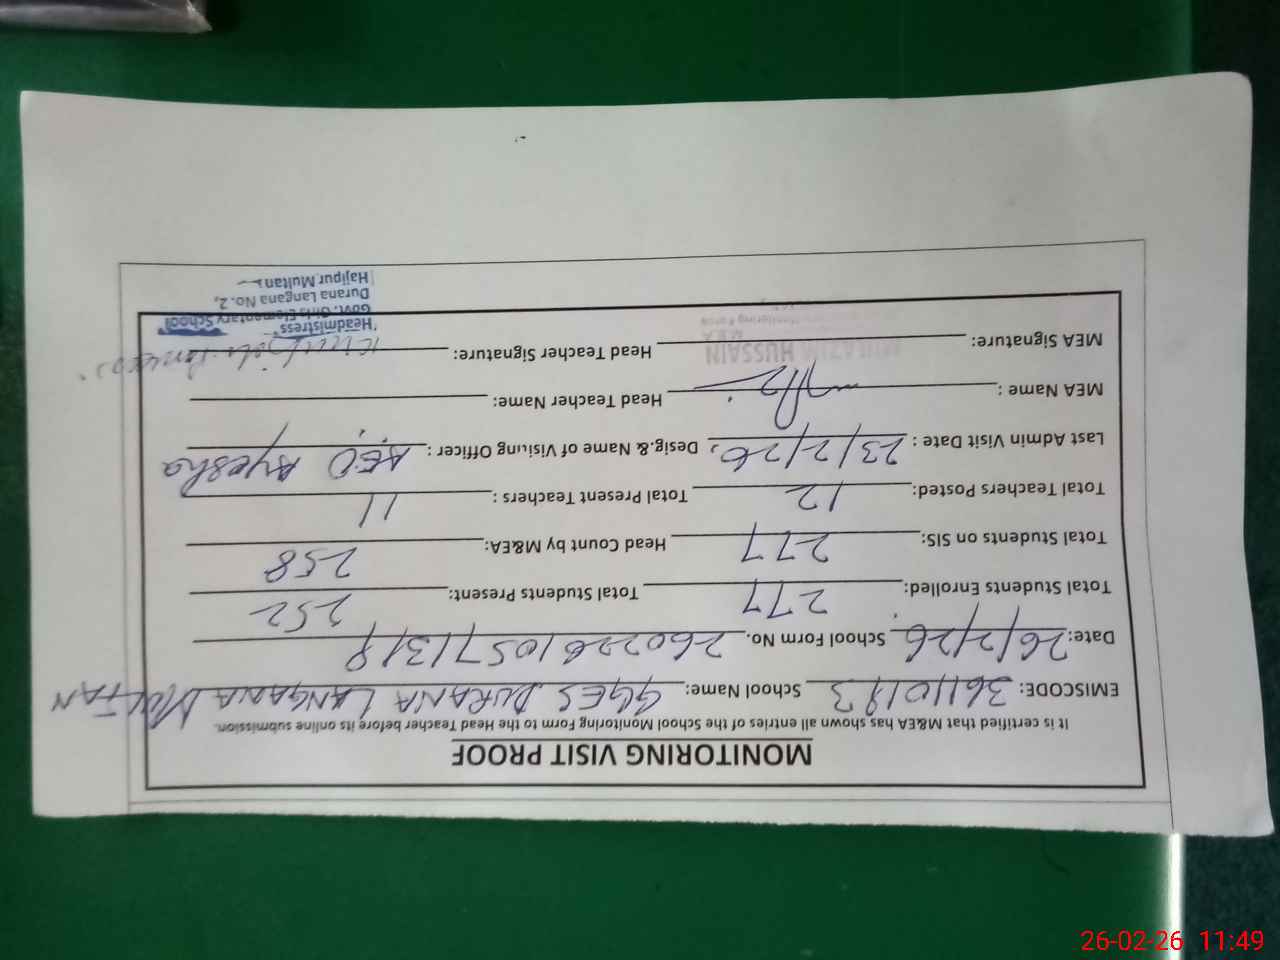 MONITORING VISIT PROOF
It is certified that M&EA has shown all entries of the School Monitoring Form to the Head Teacher before its online submission.
EMISCODE: School Name: GGES DURANA LANGANA MULTAN
Date: 26/2/26 School Form No.
Total Students Enrolled: 277 Total Students Present: 252
Total Students on SIS: 277 Head Count by M&EA: 258
Total Teachers Posted: 12 Total Present Teachers : 11
Last Admin Visit Date : 23/2/26, Desig.& Name of Visiting Officer : AEO Ayesha
MEA Name : Head Teacher Name:
MEA Signature: HUSSAIN Head Teacher Signature:
"Headmistress"
Govt. Girls Elementary School
Durana Langana No. 2,
Hajipur Multan
26-02-26 11:49